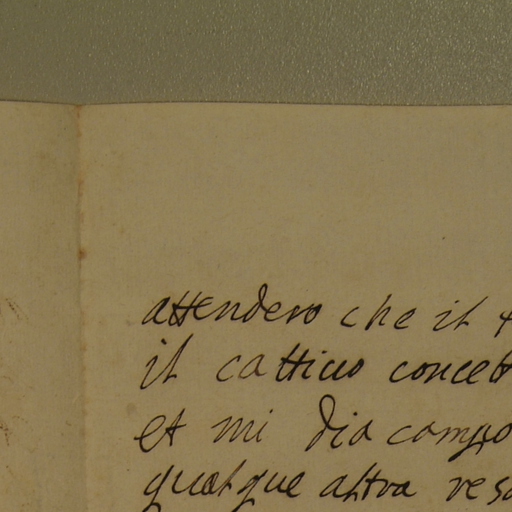 attendero che il
il cattiuo concet
et mi dia campo
qualque altra